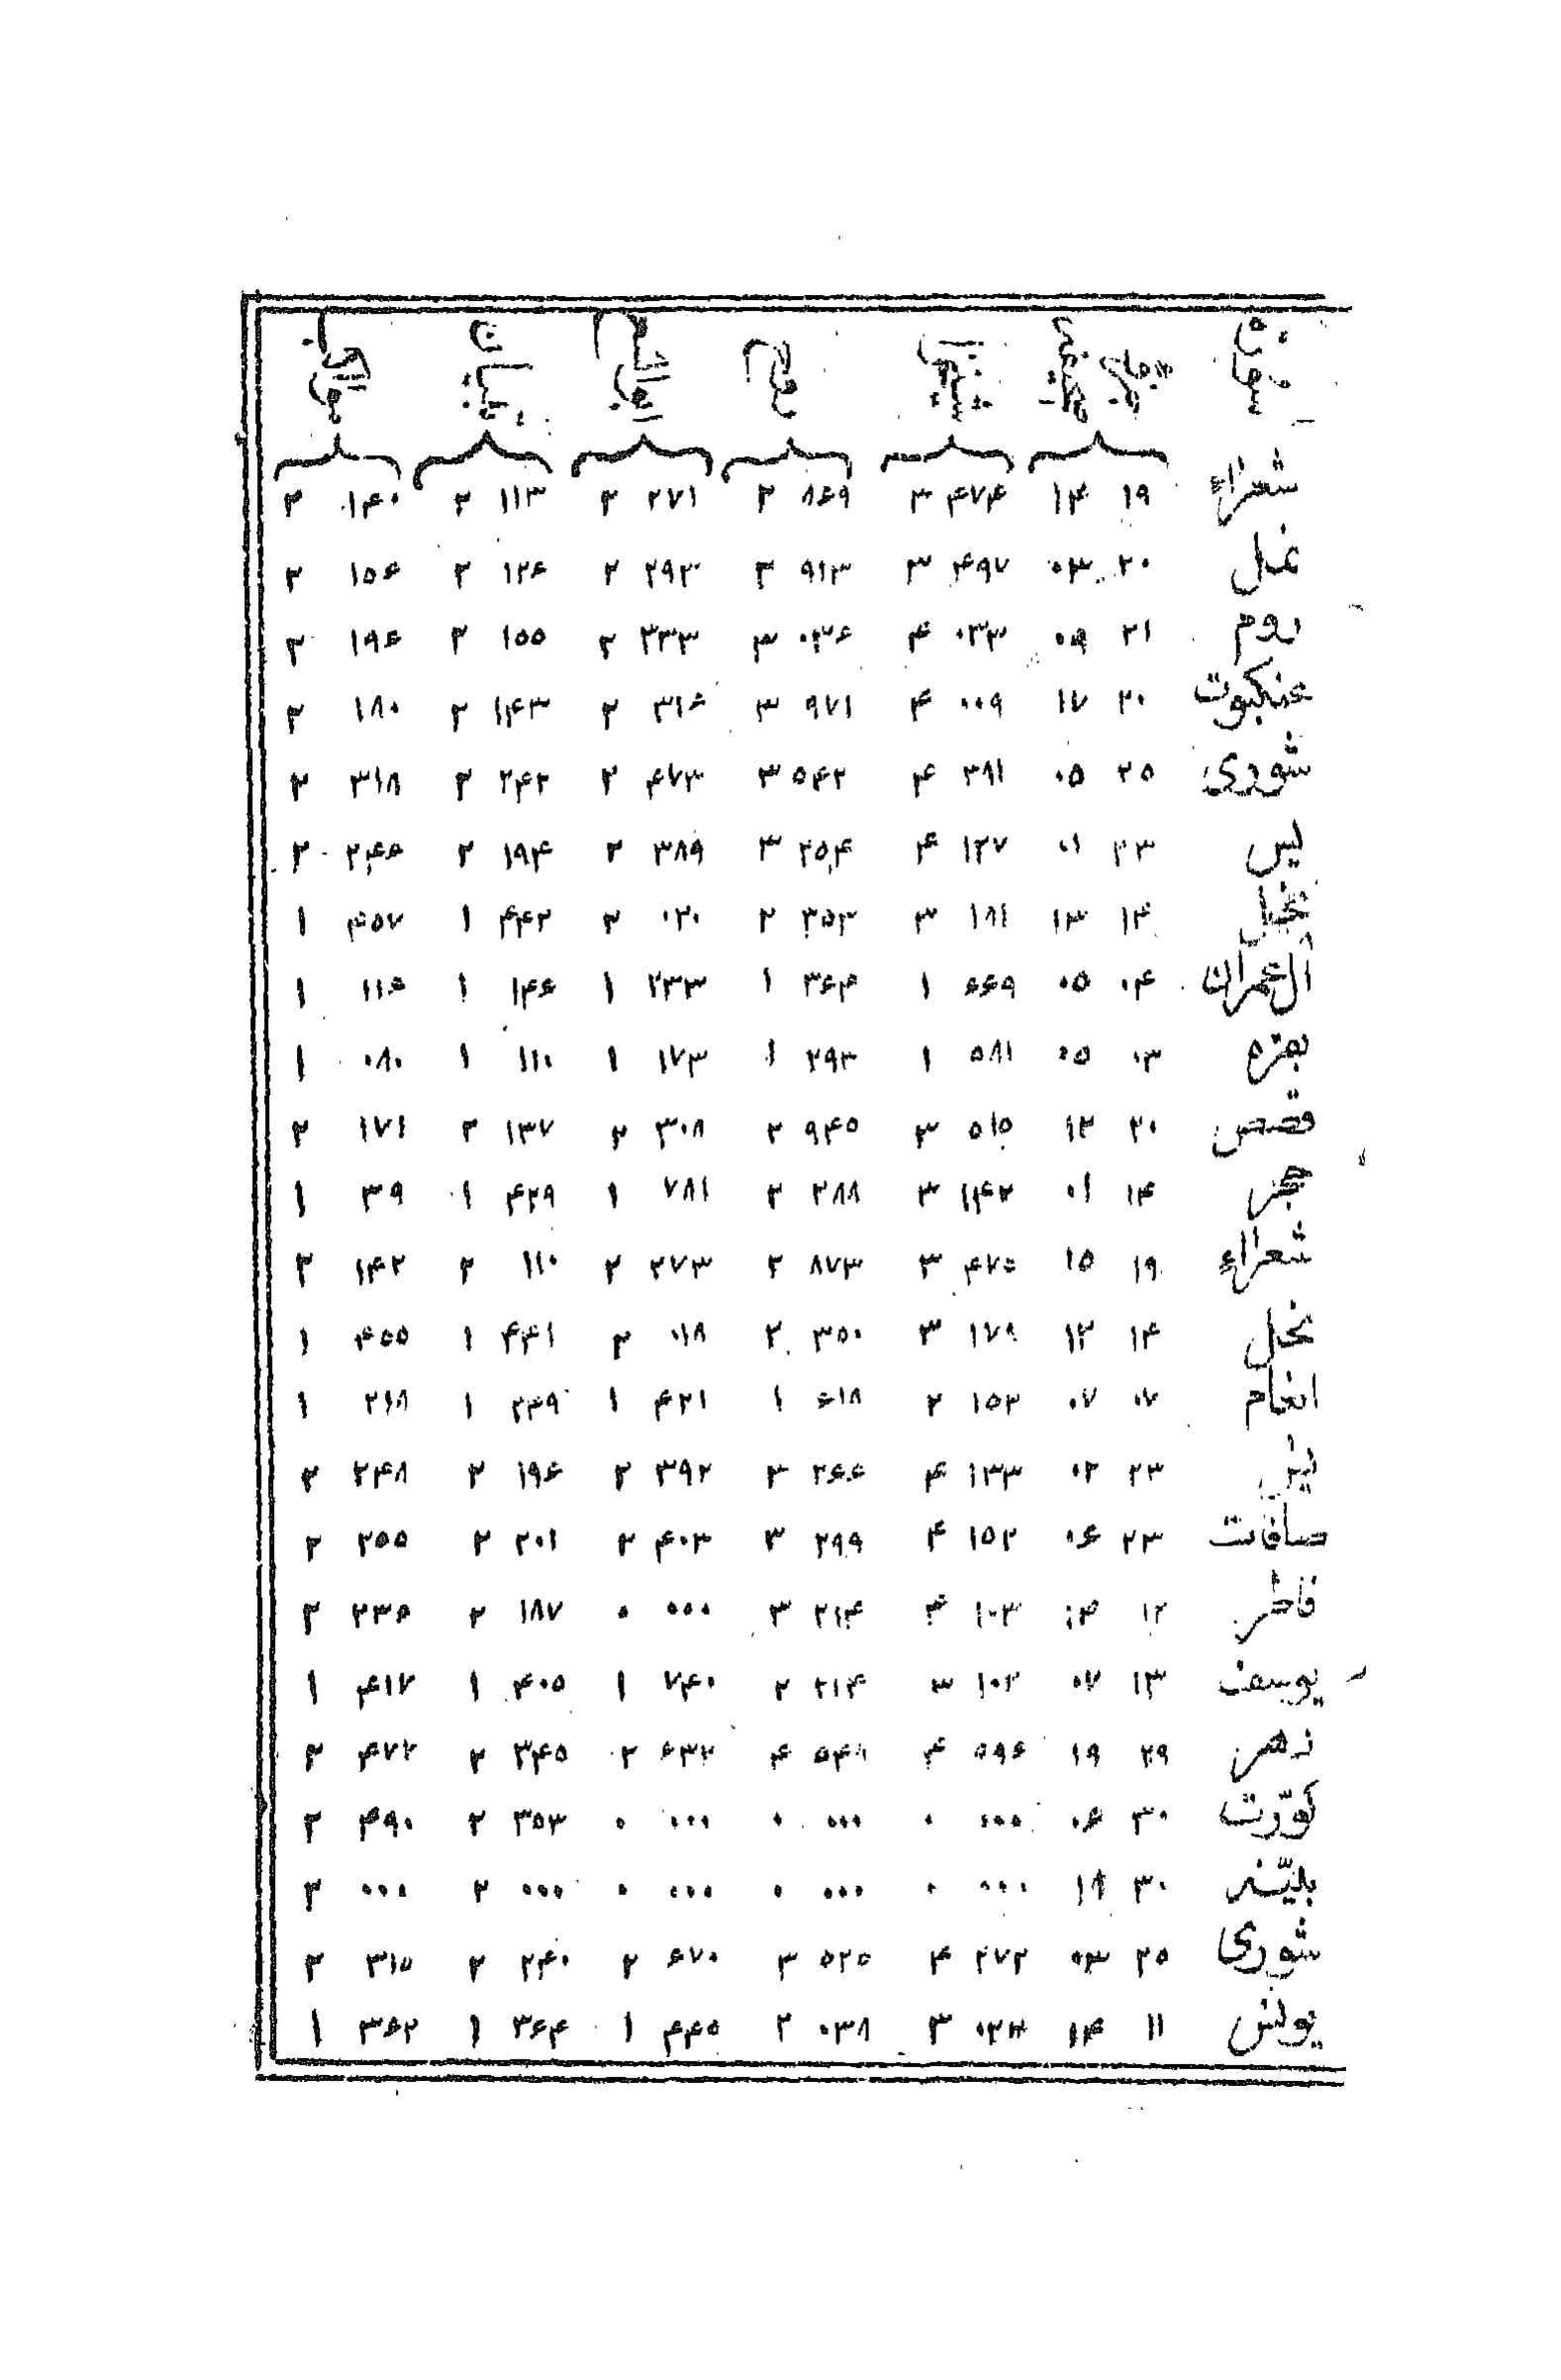 شعراء ۱۹ ۱۴ ۴۷۴ ۳ ۸۶۹ ۲ ۲۷۱ ۲ ۱۱۳ ۲ ۱۴۰ ۲
نمل ۲۰ ۰۳ ۴۹۷ ۳ ۹۱۳ ۲ ۲۹۳ ۲ ۱۲۶ ۲ ۱۵۶ ۲
روم ۲۱ ۰۹ ۰۳۳ ۴ ۰۳۶ ۳ ۳۳۳ ۲ ۱۵۵ ۲ ۱۹۶ ۲
عنکبوت ۲۰ ۱۷ ۰۰۹ ۴ ۹۷۱ ۳ ۳۱۶ ۲ ۱۴۳ ۲ ۱۸۰ ۲
شوری ۲۵ ۰۵ ۳۸۱ ۴ ۵۴۲ ۳ ۴۷۳ ۲ ۲۴۲ ۲ ۳۱۸ ۲
یس ۲۳ ۰۱ ۱۲۷ ۴ ۲۵۴ ۳ ۳۸۹ ۲ ۱۹۴ ۲ ۲۴۶ ۲
نحل ۱۴ ۱۳ ۱۸۱ ۳ ۳۵۳ ۲ ۰۲۰ ۲ ۴۴۲ ۱ ۴۵۷ ۱
آل عمران ۰۴ ۰۵ ۶۶۹ ۱ ۳۶۴ ۱ ۲۳۳ ۱ ۱۴۶ ۱ ۱۱۶ ۱
بقره ۰۳ ۰۵ ۵۸۱ ۱ ۲۹۳ ۱ ۱۷۳ ۱ ۱۱۰ ۱ ۰۸۰ ۱
قصص ۲۰ ۱۲ ۵۱۵ ۳ ۹۴۵ ۲ ۳۰۸ ۲ ۱۳۷ ۲ ۱۷۱ ۲
حجر ۱۴ ۰۱ ۱۴۲ ۳ ۲۸۸ ۲ ۷۸۱ ۱ ۴۲۹ ۱ ۳۹ ۱
شعراء ۱۹ ۱۵ ۴۷۵ ۳ ۸۷۳ ۲ ۲۷۳ ۲ ۱۱۰ ۲ ۱۴۲ ۲
نحل ۱۴ ۱۲ ۱۷۸ ۳ ۳۵۰ ۲ ۰۱۸ ۲ ۴۴۱ ۱ ۴۵۵ ۱
انعام ۰۷ ۰۷ ۱۵۳ ۲ ۶۱۸ ۱ ۴۲۱ ۱ ۲۴۹ ۱ ۲۱۸ ۱
یس ۲۳ ۰۲ ۱۳۳ ۴ ۲۶۶ ۳ ۳۹۲ ۲ ۱۹۶ ۲ ۲۴۸ ۲
صافات ۲۳ ۰۶ ۱۵۲ ۴ ۲۹۹ ۳ ۴۰۳ ۲ ۲۰۱ ۲ ۲۵۵ ۲
فاطر ۱۲ ۱۴ ۱۰۳ ۴ ۲۱۴ ۳ ۰۰۰ ۰ ۱۸۷ ۲ ۲۳۶ ۲
یوسف ۱۳ ۰۷ ۱۰۲ ۳ ۲۱۴ ۲ ۷۴۰ ۱ ۴۰۵ ۱ ۴۱۷ ۱
دهر ۲۹ ۱۹ ۵۹۶ ۴ ۵۴۸ ۴ ۶۳۲ ۲ ۳۴۵ ۲ ۴۷۲ ۲
کوّرت ۳۰ ۰۶ ۰۰۰ ۰ ۰۰۰ ۰ ۰۰۰ ۰ ۳۵۳ ۲ ۴۹۰ ۲
بلیّنه ۳۰ ۱۸ ۰۰۰ ۰ ۰۰۰ ۰ ۰۰۰ ۰ ۰۰۰ ۲ ۰۰۰ ۲
شوری ۲۵ ۰۳ ۲۷۲ ۴ ۵۲۵ ۳ ۶۷۰ ۲ ۲۴۰ ۲ ۳۱۵ ۲
یونس ۱۱ ۱۴ ۰۲۳ ۳ ۰۳۸ ۲ ۴۴۵ ۱ ۳۶۴ ۱ ۳۶۲ ۱